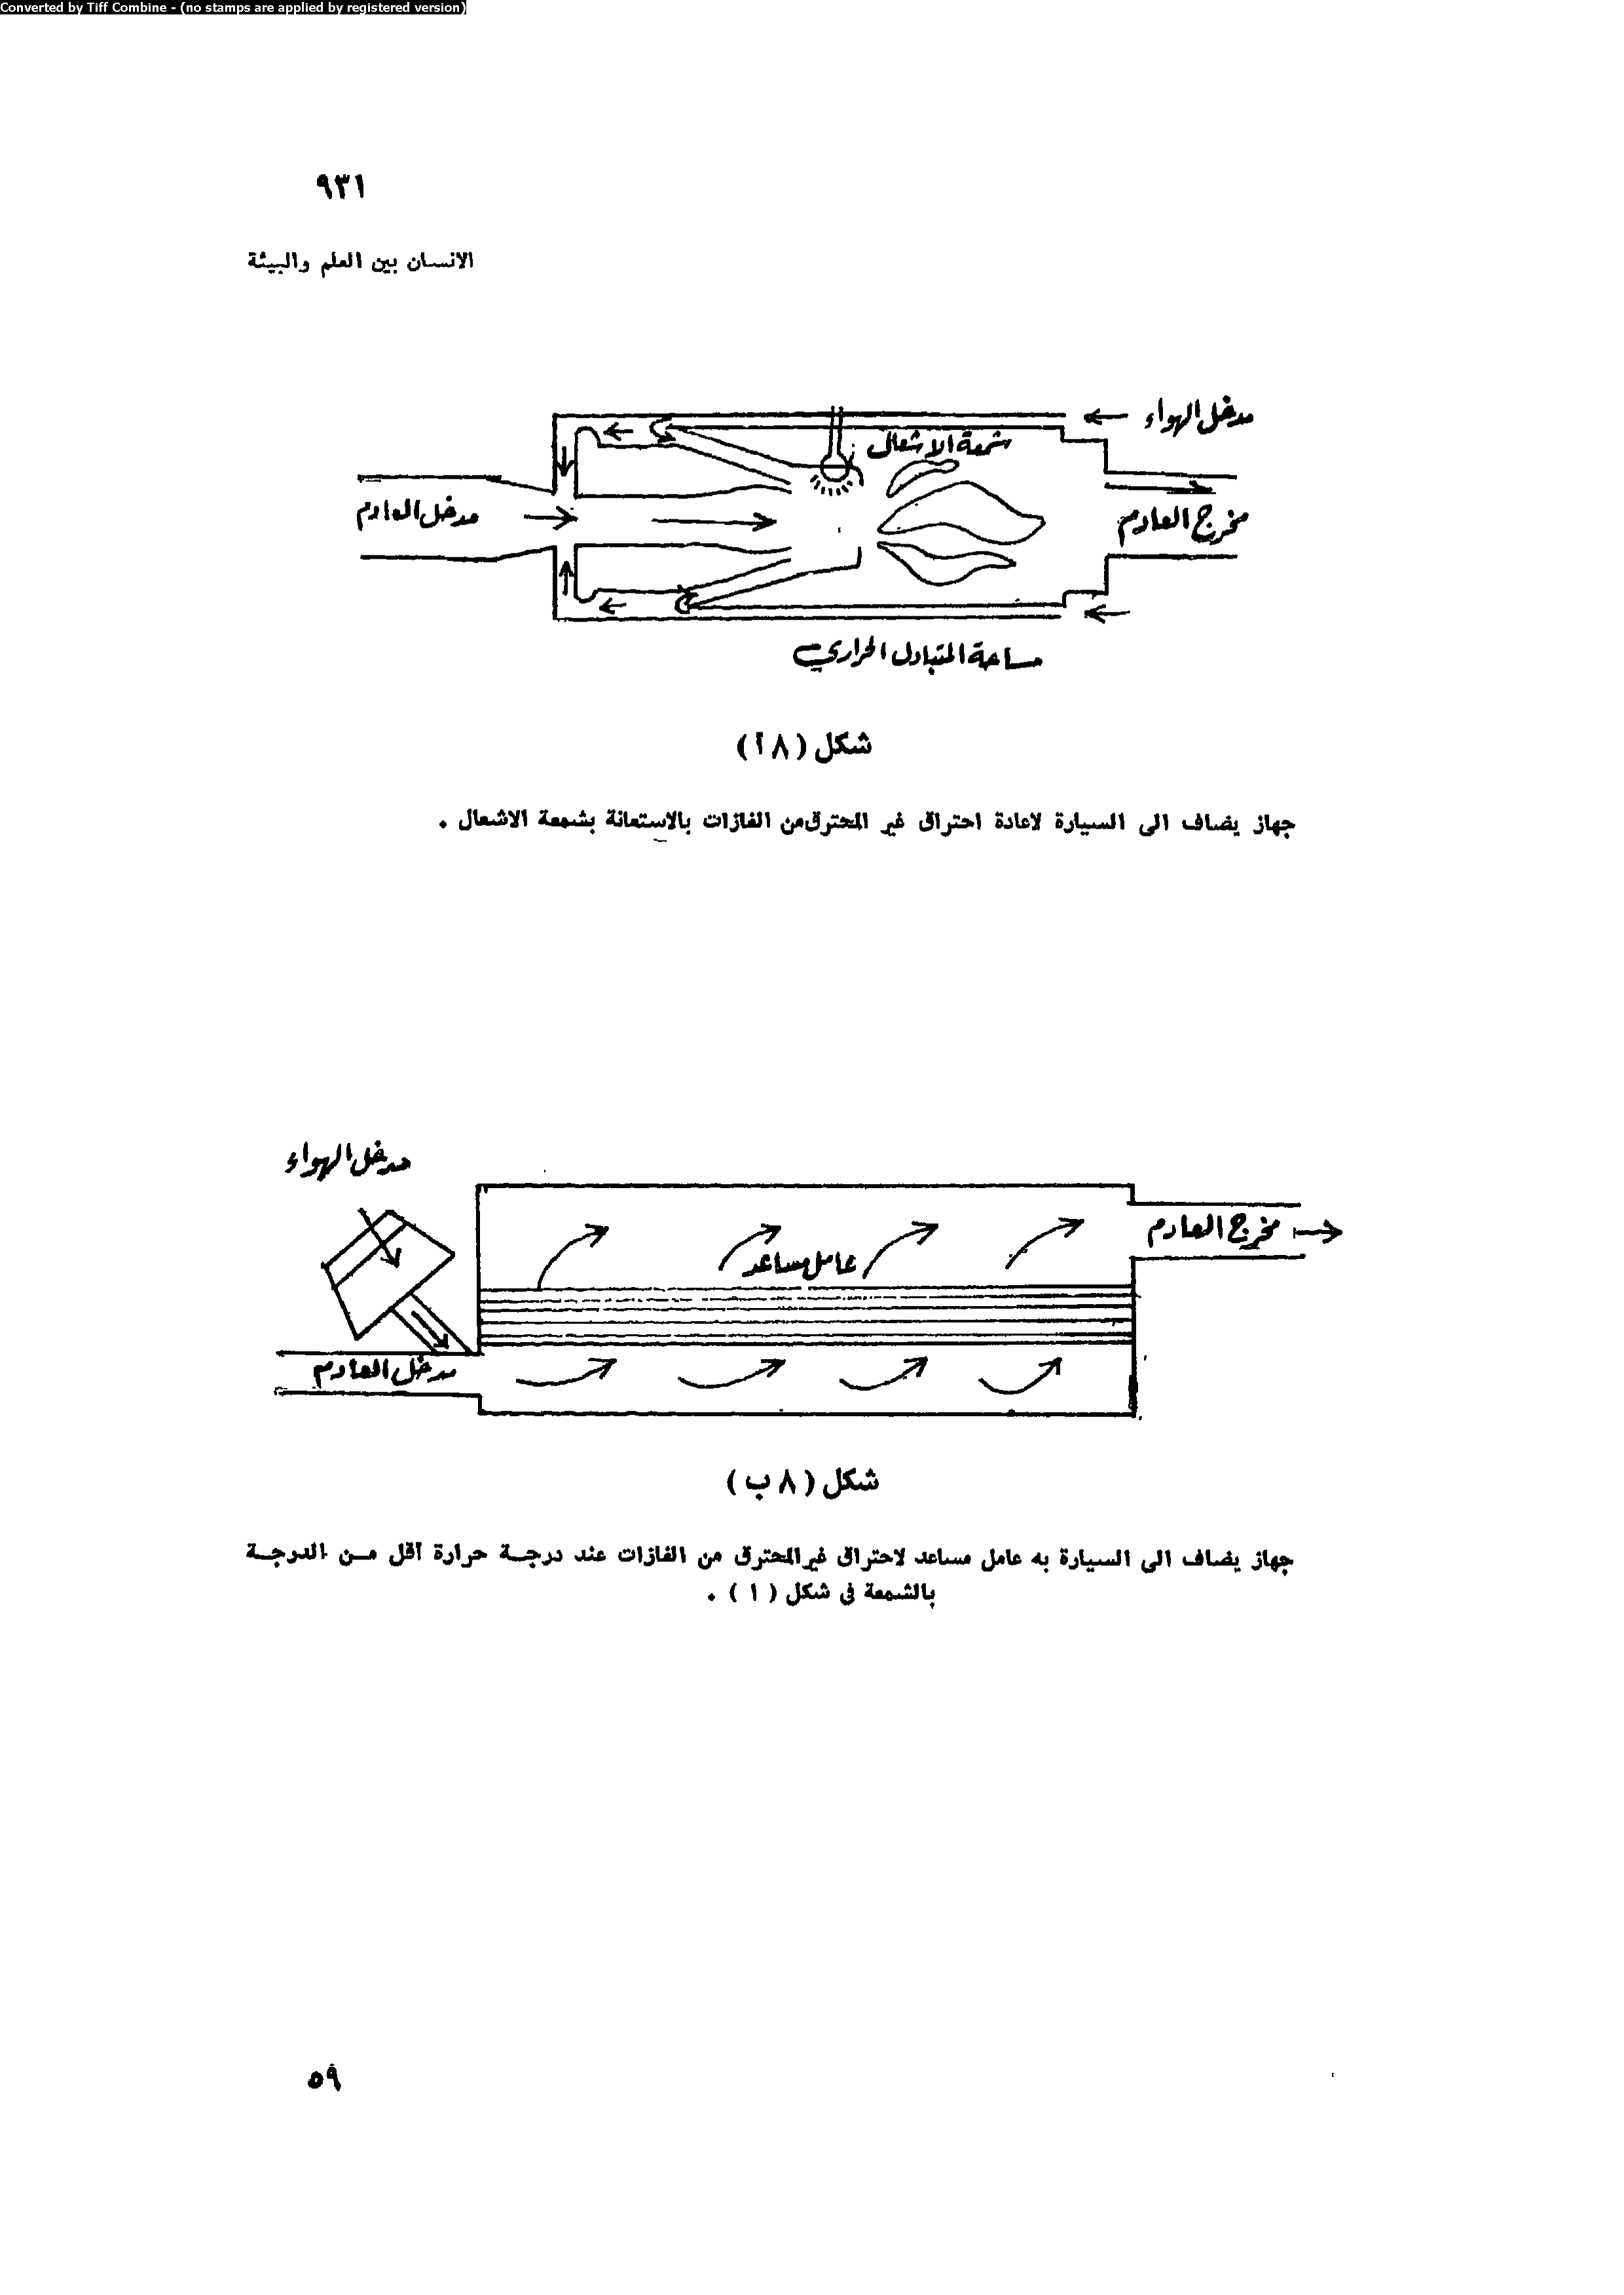 Converted by Tiff Combine - (no stamps are applied by registered version)
٩٣١
الانسان بين العلم والبيئة
مدخل الهواء
شمعة الاشعال
مدخل العادم
مخرج العادم
مساحة المتبادل الحراري
شكل ( ٨ أ )
جهاز يضاف الى السيارة لاعادة احتراق غير المحترق من الغازات بالاستعانة بشمعة الاشعال .
مدخل الهواء
مخرج العادم
عامل مساعد
مدخل العادم
شكل ( ٨ ب )
جهاز يضاف الى السيارة به عامل مساعد لاحتراق غير المحترق من الغازات عند درجة حرارة أقل من الدرجة
بالشمعة في شكل ( ١ ) .
٥٩